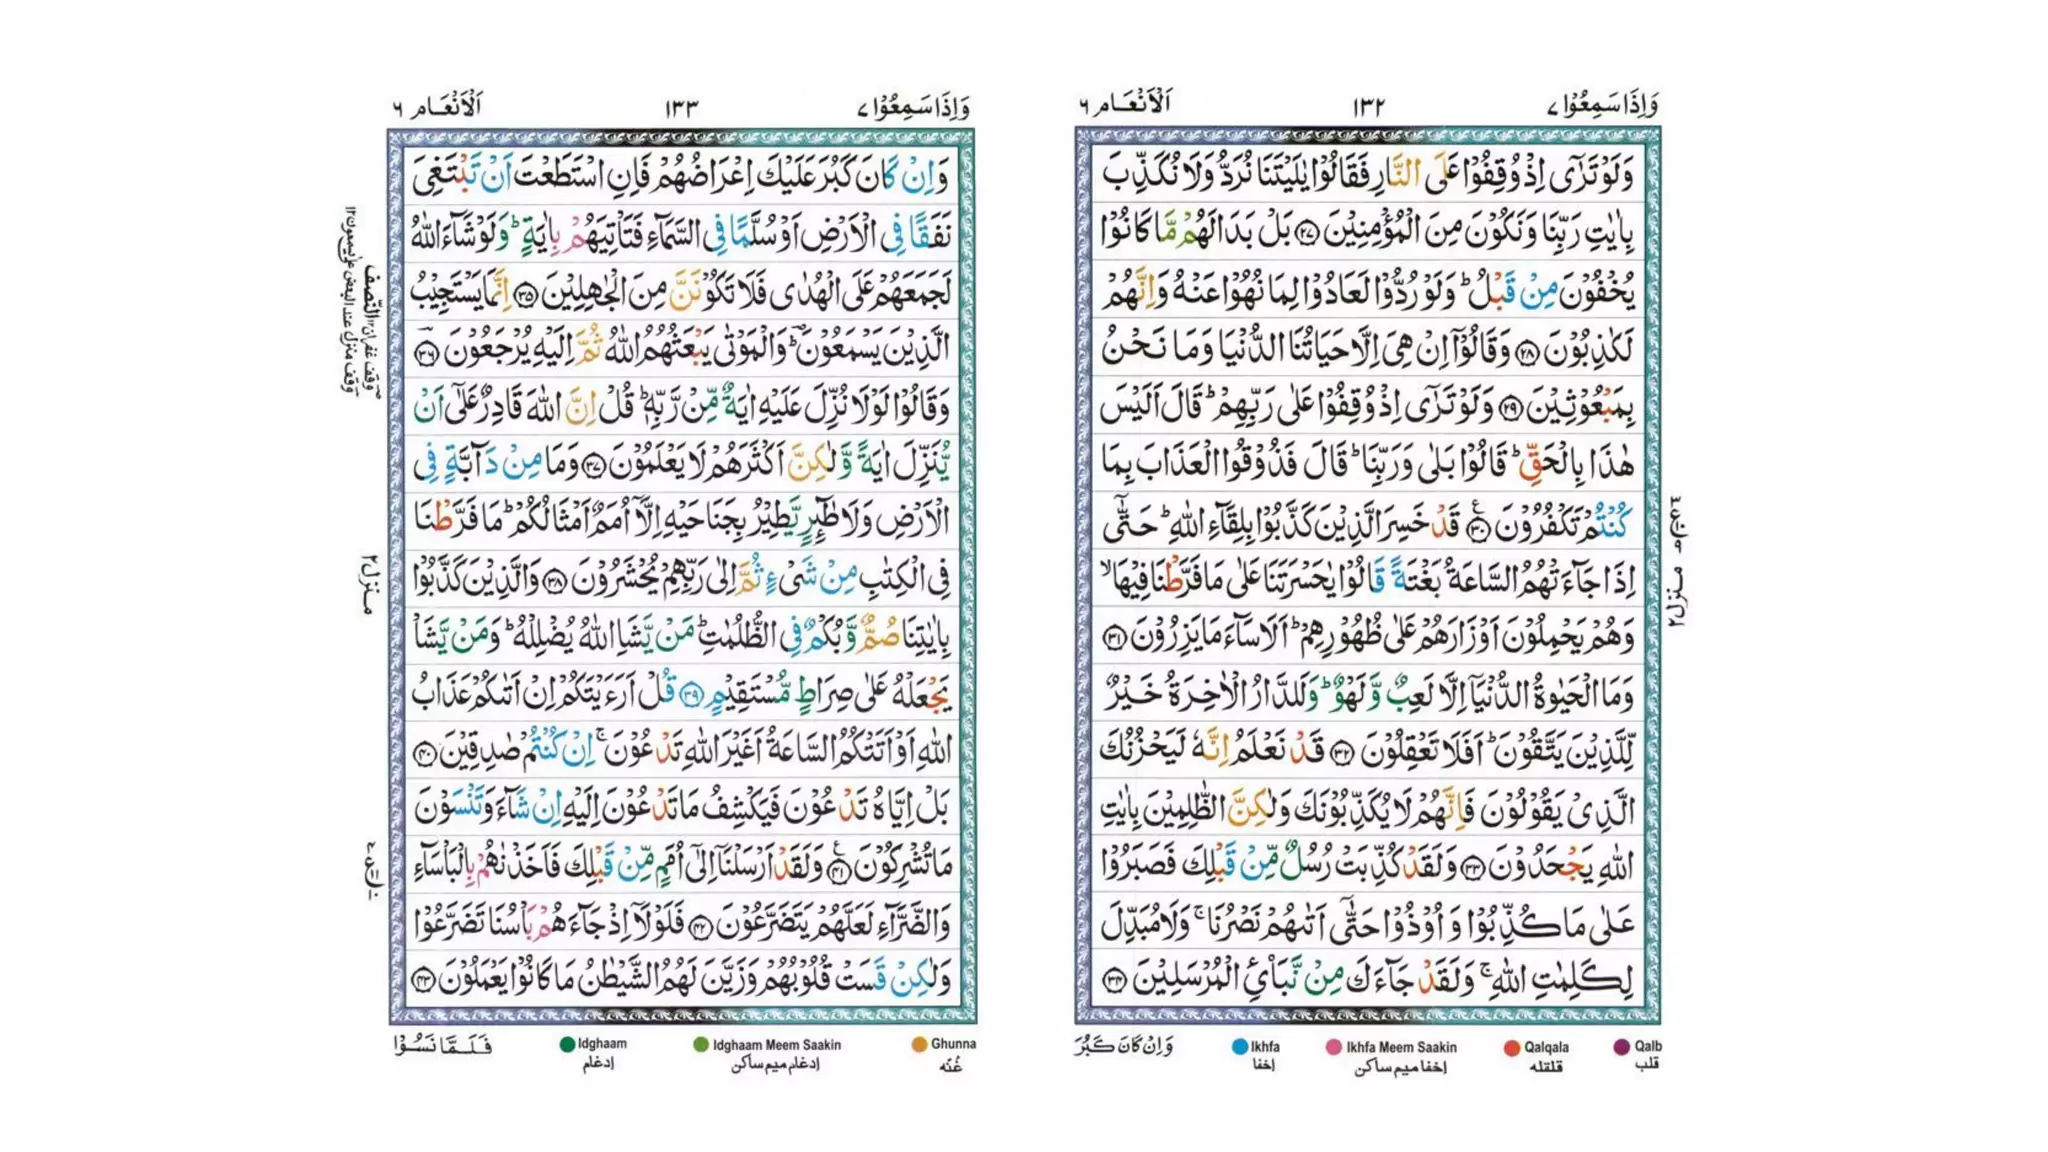 وَاِذَا سَمِعُوْا ٧
١٣٢
اَلْاَنْعَام ٦
وَلَوْ تَرٰٓى اِذْ وُقِفُوْا عَلَى النَّارِ فَقَالُوْا يٰلَيْتَنَا نُرَدُّ وَلَا نُكَذِّبَ
بِاٰيٰتِ رَبِّنَا وَنَكُوْنَ مِنَ الْمُؤْمِنِيْنَ ٢٧ بَلْ بَدَا لَهُمْ مَّا كَانُوْا
يُخْفُوْنَ مِنْ قَبْلُ ؕ وَلَوْ رُدُّوْا لَعَادُوْا لِمَا نُهُوْا عَنْهُ وَاِنَّهُمْ
لَكٰذِبُوْنَ ٢٨ وَقَالُوْۤا اِنْ هِىَ اِلَّا حَيَاتُنَا الدُّنْيَا وَمَا نَحْنُ
بِمَبْعُوْثِيْنَ ٢٩ وَلَوْ تَرٰٓى اِذْ وُقِفُوْا عَلٰى رَبِّهِمْ ؕ قَالَ اَلَيْسَ
هٰذَا بِالْحَقِّ ؕ قَالُوْا بَلٰى وَرَبِّنَا ؕ قَالَ فَذُوْقُوا الْعَذَابَ بِمَا
كُنْتُمْ تَكْفُرُوْنَ ٣٠ قَدْ خَسِرَ الَّذِيْنَ كَذَّبُوْا بِلِقَآءِ اللّٰهِ ؕ حَتّٰٓى
اِذَا جَآءَتْهُمُ السَّاعَةُ بَغْتَةً قَالُوْا يٰحَسْرَتَنَا عَلٰى مَا فَرَّطْنَا فِيْهَا ۙ
وَهُمْ يَحْمِلُوْنَ اَوْزَارَهُمْ عَلٰى ظُهُوْرِهِمْ ؕ اَلَا سَآءَ مَا يَزِرُوْنَ ٣١
وَمَا الْحَيٰوةُ الدُّنْيَاۤ اِلَّا لَعِبٌ وَّلَهْوٌ ؕ وَلَلدَّارُ الْاٰخِرَةُ خَيْرٌ
لِّلَّذِيْنَ يَتَّقُوْنَ ؕ اَفَلَا تَعْقِلُوْنَ ٣٢ قَدْ نَعْلَمُ اِنَّهٗ لَيَحْزُنُكَ
الَّذِىْ يَقُوْلُوْنَ فَاِنَّهُمْ لَا يُكَذِّبُوْنَكَ وَلٰكِنَّ الظّٰلِمِيْنَ بِاٰيٰتِ
اللّٰهِ يَجْحَدُوْنَ ٣٣ وَلَقَدْ كُذِّبَتْ رُسُلٌ مِّنْ قَبْلِكَ فَصَبَرُوْا
عَلٰى مَا كُذِّبُوْا وَاُوْذُوْا حَتّٰٓى اَتٰىهُمْ نَصْرُنَا ۚ وَلَا مُبَدِّلَ
لِكَلِمٰتِ اللّٰهِ ۚ وَلَقَدْ جَآءَكَ مِنْ نَّبَاِى الْمُرْسَلِيْنَ ٣٤
مـنزل ٢
وَاِنْ كَانَ كَبُرَ
Ikhfa
اِخفا
Ikhfa Meem Saakin
اِخفا میم ساکن
Qalqala
قلقله
Qalb
قلب
وَاِذَا سَمِعُوْا ٧
١٣٣
اَلْاَنْعَام ٦
وَاِنْ كَانَ كَبُرَ عَلَيْكَ اِعْرَاضُهُمْ فَاِنِ اسْتَطَعْتَ اَنْ تَبْتَغِىَ
نَفَقًا فِى الْاَرْضِ اَوْ سُلَّمًا فِى السَّمَآءِ فَتَاْتِيَهُمْ بِاٰيَةٍ ؕ وَلَوْ شَآءَ اللّٰهُ
لَجَمَعَهُمْ عَلَى الْهُدٰى فَلَا تَكُوْنَنَّ مِنَ الْجٰهِلِيْنَ ٣٥ اِنَّمَا يَسْتَجِيْبُ
الَّذِيْنَ يَسْمَعُوْنَ ؕ وَالْمَوْتٰى يَبْعَثُهُمُ اللّٰهُ ثُمَّ اِلَيْهِ يُرْجَعُوْنَ ٣٦
وَقَالُوْا لَوْلَا نُزِّلَ عَلَيْهِ اٰيَةٌ مِّنْ رَّبِّهٖ ؕ قُلْ اِنَّ اللّٰهَ قَادِرٌ عَلٰٓى اَنْ
يُّنَزِّلَ اٰيَةً وَّلٰكِنَّ اَكْثَرَهُمْ لَا يَعْلَمُوْنَ ٣٧ وَمَا مِنْ دَآبَّةٍ فِى
الْاَرْضِ وَلَا طٰٓئِرٍ يَّطِيْرُ بِجَنَاحَيْهِ اِلَّاۤ اُمَمٌ اَمْثَالُكُمْ ؕ مَا فَرَّطْنَا
فِى الْكِتٰبِ مِنْ شَىْءٍ ثُمَّ اِلٰى رَبِّهِمْ يُحْشَرُوْنَ ٣٨ وَالَّذِيْنَ كَذَّبُوْا
بِاٰيٰتِنَا صُمٌّ وَّبُكْمٌ فِى الظُّلُمٰتِ ؕ مَنْ يَّشَاِ اللّٰهُ يُضْلِلْهُ ؕ وَمَنْ يَّشَاْ
يَجْعَلْهُ عَلٰى صِرَاطٍ مُّسْتَقِيْمٍ ٣٩ قُلْ اَرَءَيْتَكُمْ اِنْ اَتٰىكُمْ عَذَابُ
اللّٰهِ اَوْ اَتَتْكُمُ السَّاعَةُ اَغَيْرَ اللّٰهِ تَدْعُوْنَ ۚ اِنْ كُنْتُمْ صٰدِقِيْنَ ٤٠
بَلْ اِيَّاهُ تَدْعُوْنَ فَيَكْشِفُ مَا تَدْعُوْنَ اِلَيْهِ اِنْ شَآءَ وَتَنْسَوْنَ
مَا تُشْرِكُوْنَ ٤١ وَلَقَدْ اَرْسَلْنَاۤ اِلٰٓى اُمَمٍ مِّنْ قَبْلِكَ فَاَخَذْنٰهُمْ بِالْبَاْسَآءِ
وَالضَّرَّآءِ لَعَلَّهُمْ يَتَضَرَّعُوْنَ ٤٢ فَلَوْلَاۤ اِذْ جَآءَهُمْ بَاْسُنَا تَضَرَّعُوْا
وَلٰكِنْ قَسَتْ قُلُوْبُهُمْ وَزَيَّنَ لَهُمُ الشَّيْطٰنُ مَا كَانُوْا يَعْمَلُوْنَ ٤٣
النّصف
مـنزل ٢
فَلَمَّا نَسُوْا
Idghaam
اِدغام
Idghaam Meem Saakin
اِدغام میم ساکن
Ghunna
غُنّه